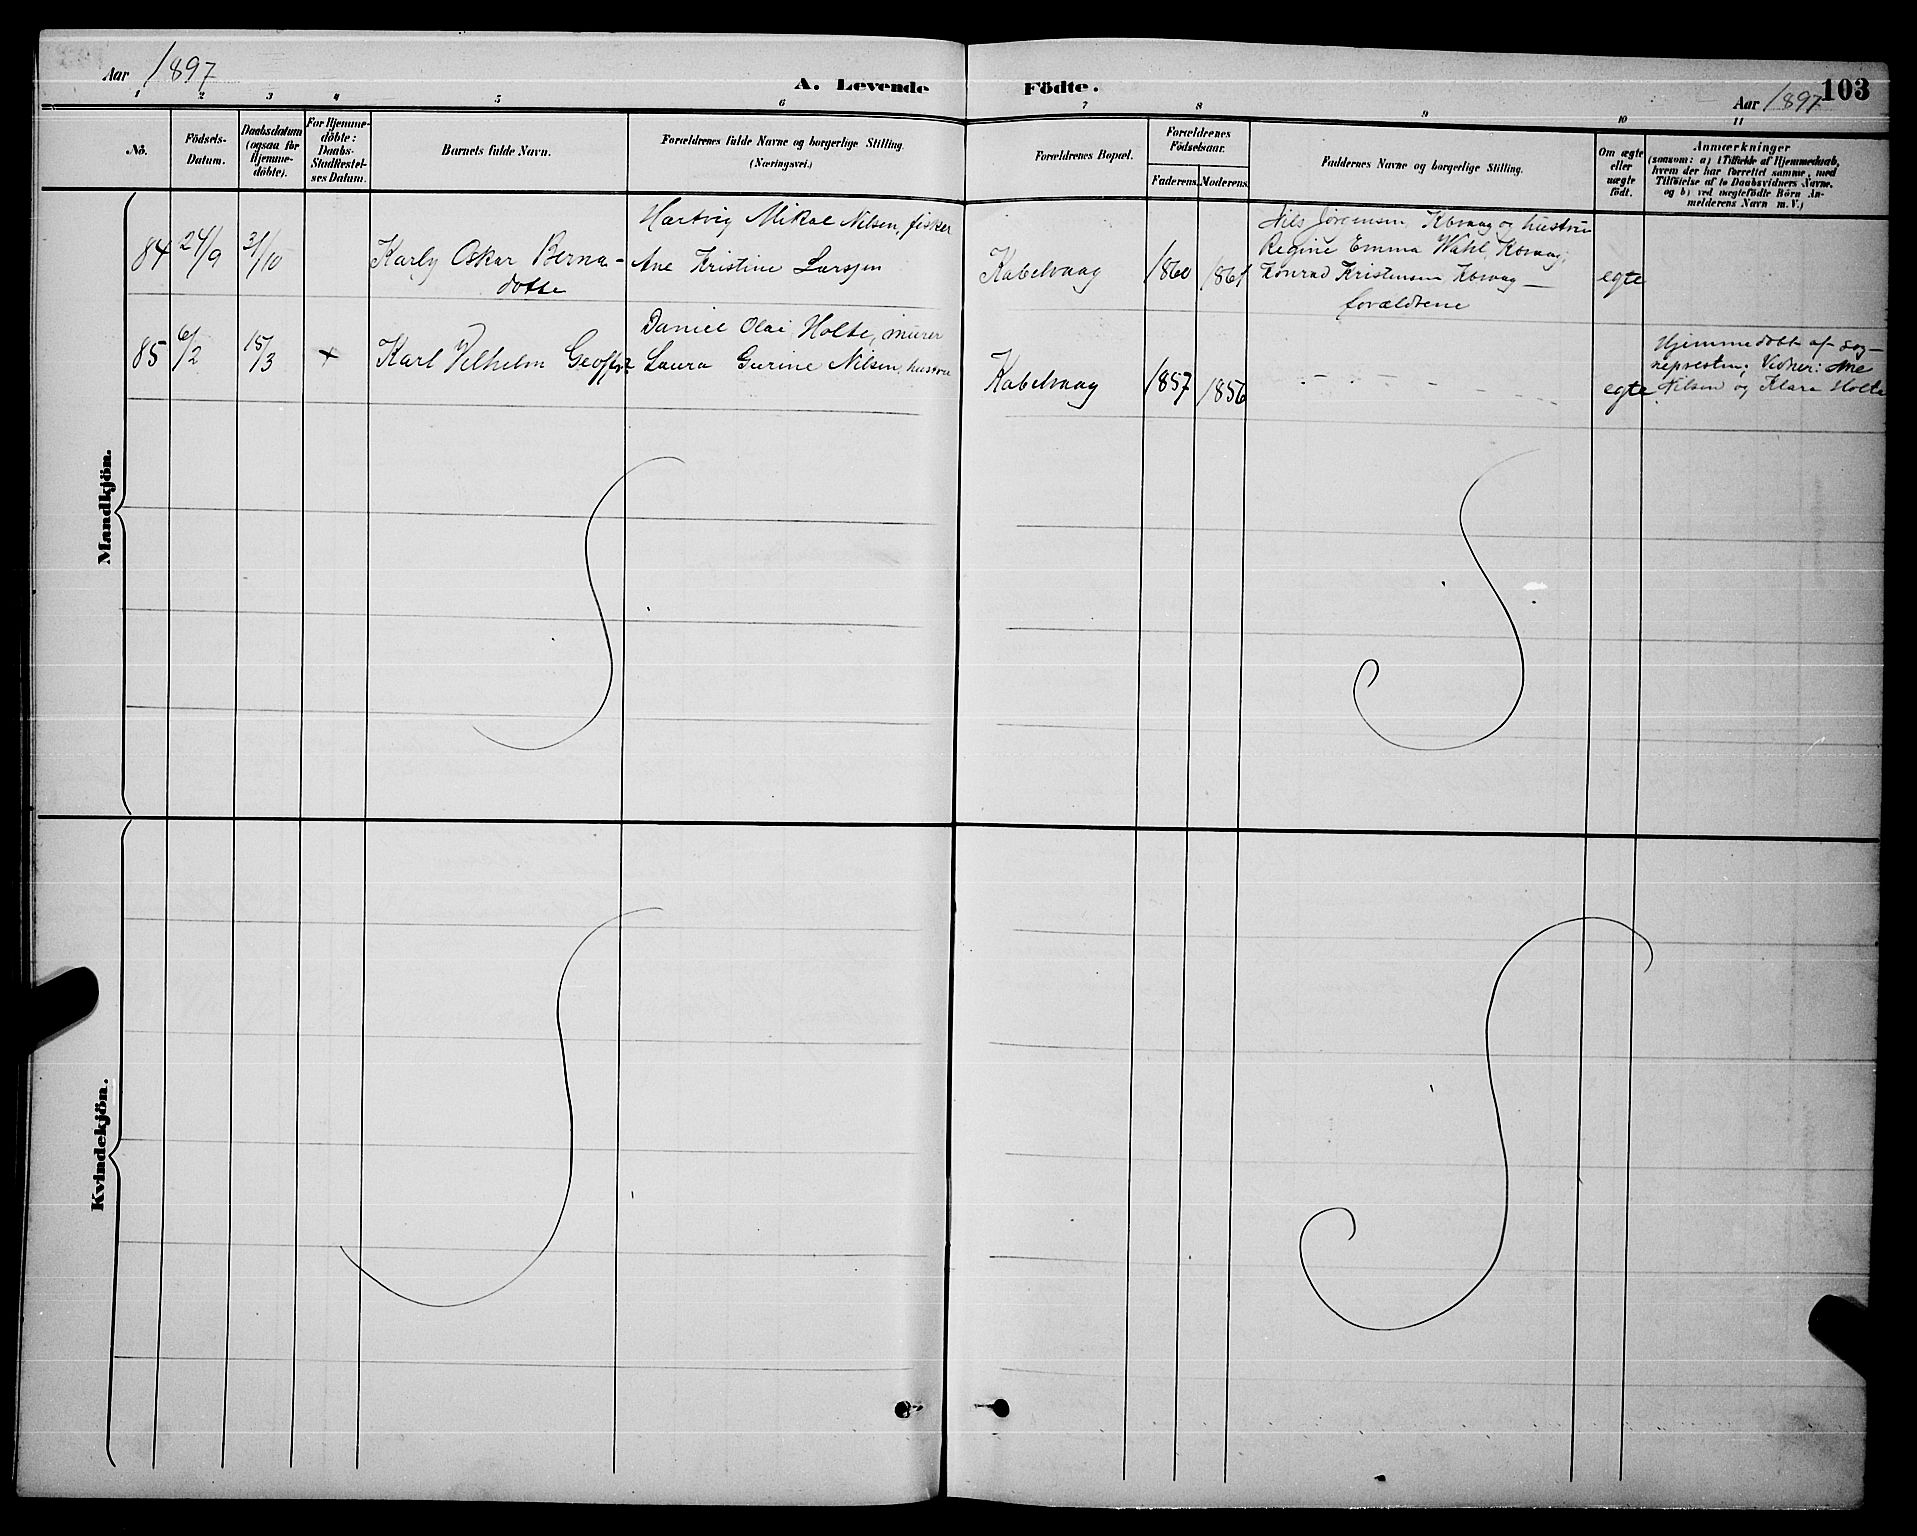 Aar 1897
A. Levende Födte.
Aar 1897 103
1 2 3 4 5 6 7 8 9 10 11
No.
Födsels-
Datum.
Daabsdatum
(ogsaa for
Hjemme-
döbte).
For Hjemme-
döbte:
Daabs-
Stadfestel-
ses Datum.
Barnets fulde Navn.
Forældrenes fulde Navne og borgerlige Stilling.
(Næringsvei.)
Forældrenes Bopæl.
Forældrenes
Födselsaar.
Faderens. Moderens.
Faddernes Navne og borgerlige Stilling.
Om ægte
eller
uægte
födt.
Anmærkninger
(saasom: a) i Tilfælde af Hjemmedaab,
hvem der har forrettet samme, med
Tilföielse af to Daabsvidners Navne,
og b) ved uægtefödte Börn An-
melderens Navn m. V.)
Mandkjön.
84 24/9 31/10 Karly Oskar Berna-
dotte
Hartvig Mikal Nilsen, fisker
Ane Kristine Larssen
Kabelvaag 1860 1861
Nils Jørgensen, Kbvaag og hustru
Regine Emma Wahl, Kbvaag;
Konrad Kristensen Kbvaag —
forældrene
egte
85 6/2 15/3 + Karl Vilhelm
Daniel Olai Holte, murer
Laura Gurine Nilsen, hustru
Kabelvaag 1857 1856
egte
Hjemmedøbt af sog-
nepresten; Vidner: Ane
Nilsen og Klara Holte
Kvindekjön.